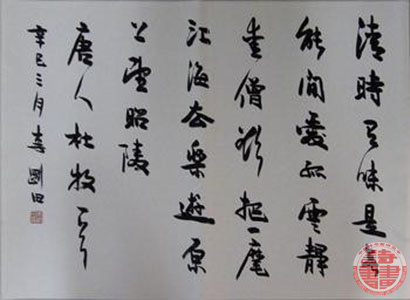 清時有味是無
能閒愛孤雲靜
愛僧欲把一麾
江海去樂遊原
上望昭陵
唐人杜牧
辛巳三月